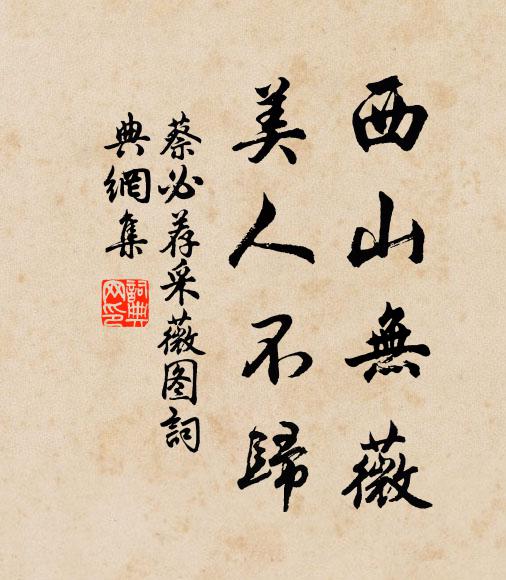 西山無薇
美人不歸
蔡必荐采薇图詞
典網集
詞典网印